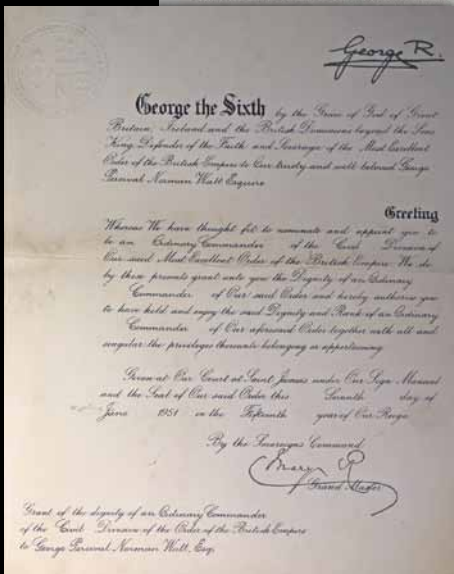 George R.
George the Sixth by the Grace of God of Great
Britain, Ireland and the British Dominions beyond the Seas
King, Defender of the Faith and Sovereign of the Most Excellent
Order of the British Empire to Our trusty and well beloved George
Percival Norman Watt Esquire
Greeting
Whereas We have thought fit to nominate and appoint you to
be an Ordinary Commander of the Civil Division of
Our said Most Excellent Order of the British Empire We do
by these presents grant unto you the Dignity of an Ordinary
Commander of Our said Order and hereby authorise you
to have hold and enjoy the said Dignity and Rank of an Ordinary
Commander of Our aforesaid Order together with all and
singular the privileges thereunto belonging or appertaining
Given at Our Court at Saint James under Our Sign Manual
and the Seal of Our said Order this Seventh day of
June 1951 in the Fifteenth year of Our Reign
By the Sovereign's Command
Mary R
Grand Master
Grant of the dignity of an Ordinary Commander
of the Civil Division of the Order of the British Empire
to George Percival Norman Watt, Esq.